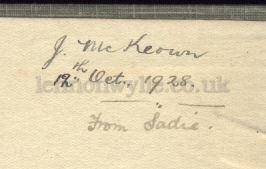 J. McKeown
12th Oct., 1928.
From Sadie.
lennonwylie.co.uk